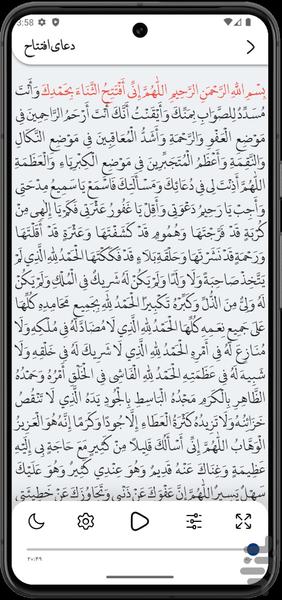 3:58
دعای افتتاح
بِسْمِ اللّٰهِ الرَّحْمٰنِ الرَّحِيمِ اللّٰهُمَّ إِنِّي أَفْتَتِحُ الثَّنَاءَ بِحَمْدِكَ وَأَنْتَ
مُسَدِّدٌ لِلصَّوَابِ بِمَنِّكَ وَأَيْقَنْتُ أَنَّكَ أَنْتَ أَرْحَمُ الرَّاحِمِينَ فِي
مَوْضِعِ الْعَفْوِ وَالرَّحْمَةِ وَأَشَدُّ الْمُعَاقِبِينَ فِي مَوْضِعِ النَّكَالِ
وَالنَّقِمَةِ وَأَعْظَمُ الْمُتَجَبِّرِينَ فِي مَوْضِعِ الْكِبْرِيَاءِ وَالْعَظَمَةِ
اللّٰهُمَّ أَذِنْتَ لِي فِي دُعَائِكَ وَمَسْأَلَتِكَ فَاسْمَعْ يَا سَمِيعُ مِدْحَتِي
وَأَجِبْ يَا رَحِيمُ دَعْوَتِي وَأَقِلْ يَا غَفُورُ عَثْرَتِي فَكَمْ يَا إِلٰهِي مِنْ
كُرْبَةٍ قَدْ فَرَّجْتَهَا وَهُمُومٍ قَدْ كَشَفْتَهَا وَعَثْرَةٍ قَدْ أَقَلْتَهَا
وَرَحْمَةٍ قَدْ نَشَرْتَهَا وَحَلْقَةِ بَلَاءٍ قَدْ فَكَكْتَهَا الْحَمْدُ لِلّٰهِ الَّذِي لَمْ
يَتَّخِذْ صَاحِبَةً وَلَا وَلَدًا وَلَمْ يَكُنْ لَهُ شَرِيكٌ فِي الْمُلْكِ وَلَمْ يَكُنْ
لَهُ وَلِيٌّ مِنَ الذُّلِّ وَكَبِّرْهُ تَكْبِيرًا الْحَمْدُ لِلّٰهِ بِجَمِيعِ مَحَامِدِهِ كُلِّهَا
عَلَى جَمِيعِ نِعَمِهِ كُلِّهَا الْحَمْدُ لِلّٰهِ الَّذِي لَا مُضَادَّ لَهُ فِي مُلْكِهِ وَلَا
مُنَازِعَ لَهُ فِي أَمْرِهِ الْحَمْدُ لِلّٰهِ الَّذِي لَا شَرِيكَ لَهُ فِي خَلْقِهِ وَلَا
شَبِيهَ لَهُ فِي عَظَمَتِهِ الْحَمْدُ لِلّٰهِ الْفَاشِي فِي الْخَلْقِ أَمْرُهُ وَحَمْدُهُ
الظَّاهِرِ بِالْكَرَمِ مَجْدُهُ الْبَاسِطِ بِالْجُودِ يَدَهُ الَّذِي لَا تَنْقُصُ
خَزَائِنُهُ وَلَا تَزِيدُهُ كَثْرَةُ الْعَطَاءِ إِلَّا جُودًا وَكَرَمًا إِنَّهُ هُوَ الْعَزِيزُ
الْوَهَّابُ اللّٰهُمَّ إِنِّي أَسْأَلُكَ قَلِيلًا مِنْ كَثِيرٍ مَعَ حَاجَةٍ بِي إِلَيْهِ
عَظِيمَةٍ وَغِنَاكَ عَنْهُ قَدِيمٌ وَهُوَ عِنْدِي كَثِيرٌ وَهُوَ عَلَيْكَ
سَهْلٌ يَسِيرٌ اللّٰهُمَّ إِنَّ عَفْوَكَ عَنْ ذَنْبِي وَتَجَاوُزَكَ عَنْ خَطِيئَتِي
۲۰:۴۹